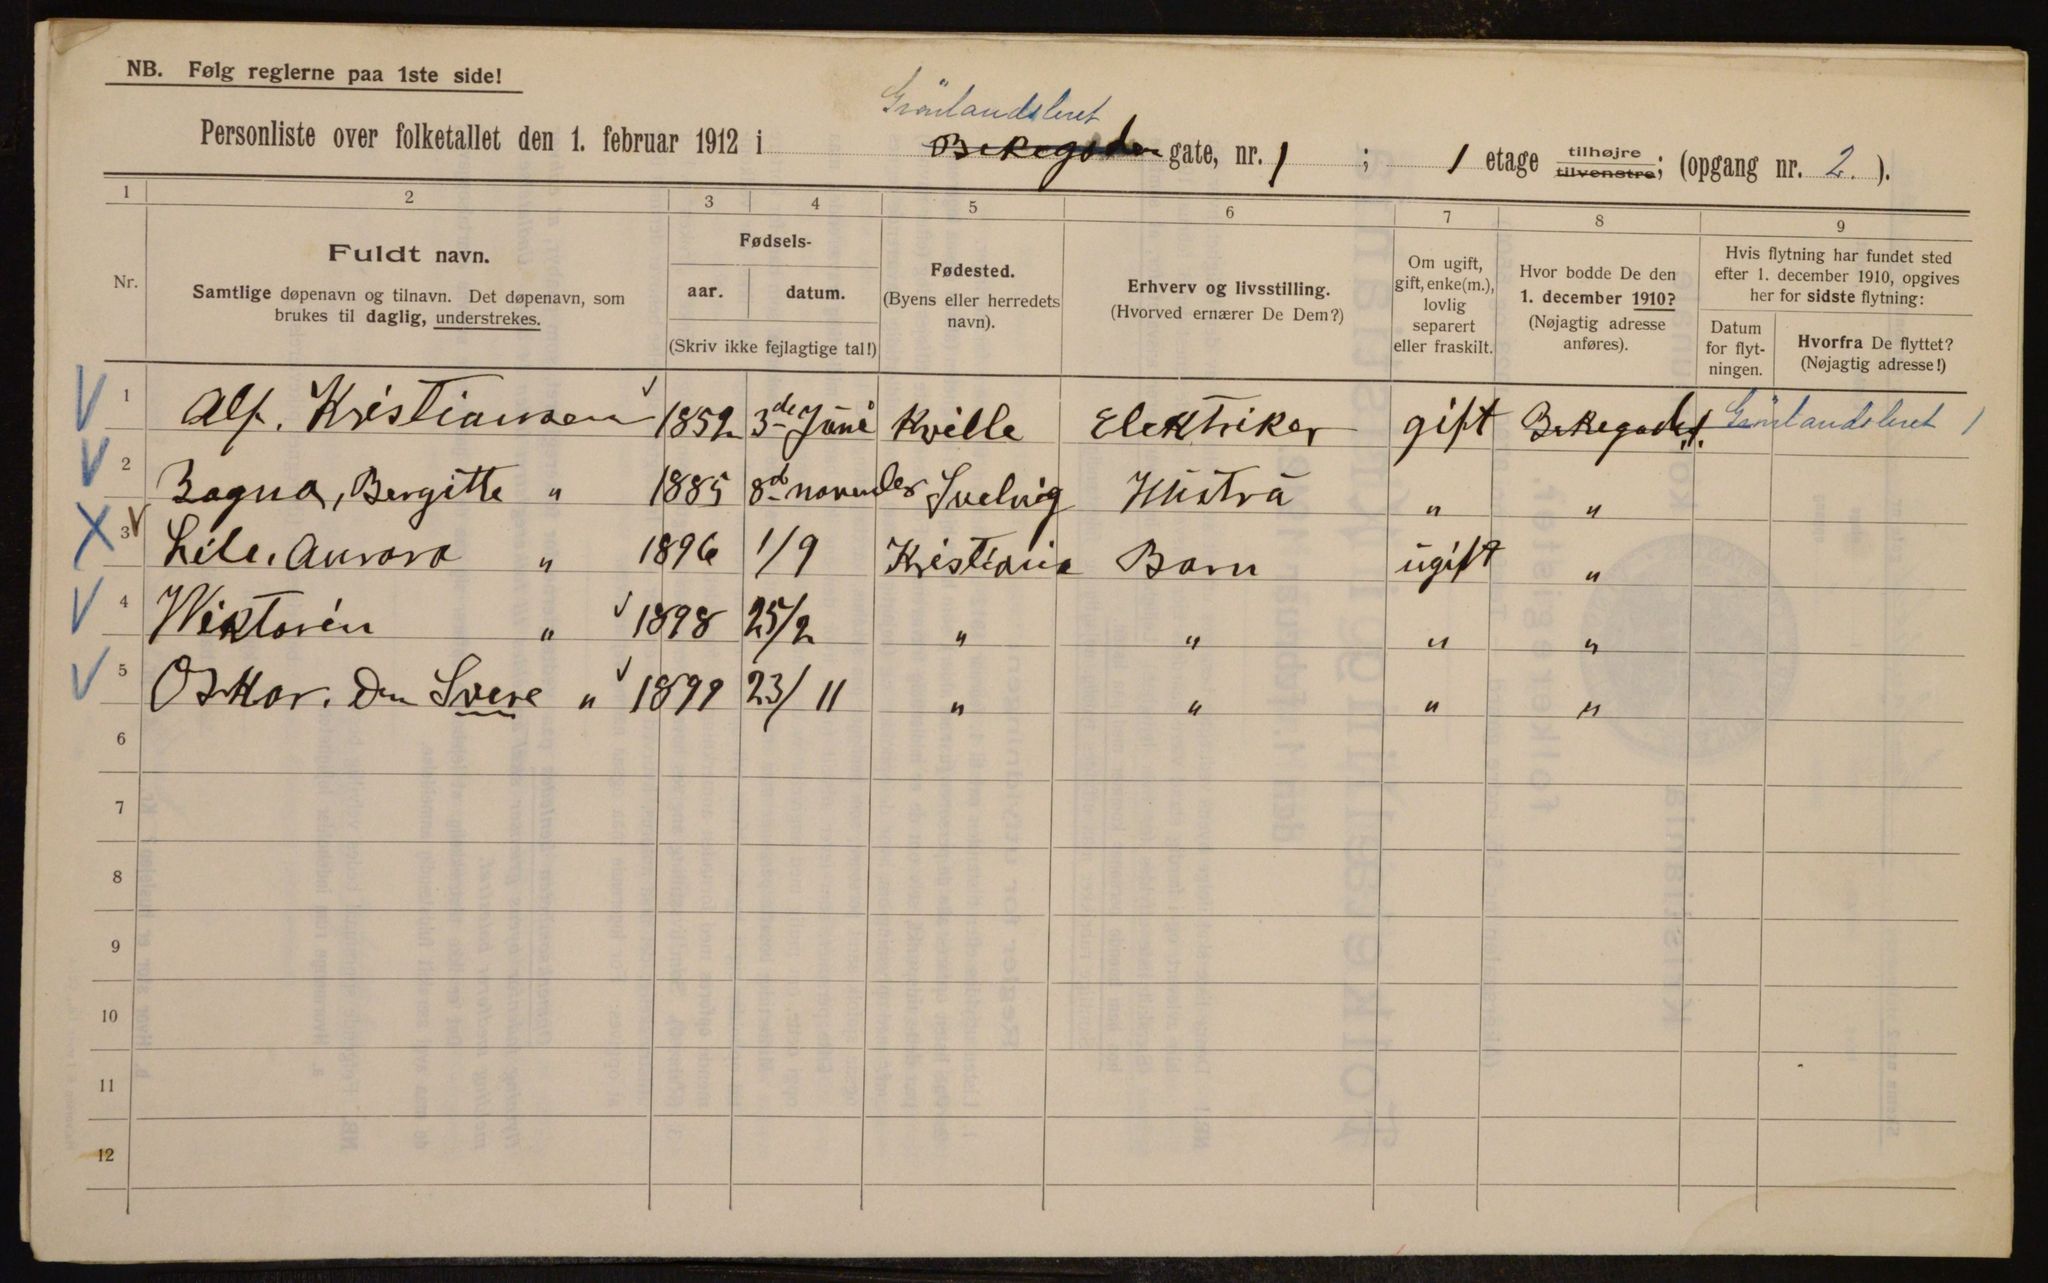 NB. Følg reglerne paa 1ste side!
Grönlandsleret
Personliste over folketallet den 1. februar 1912 i Bekegaden gate, nr. 1 ; 1 etage tilhøjre tilvenstre; (opgang nr. 2. ).
1 2 3 4 5 6 7 8 9
Nr.
Fuldt navn.
Samtlige døpenavn og tilnavn. Det døpenavn, som
brukes til daglig, understrekes.
Fødsels-
aar. datum.
(Skriv ikke fejlagtige tal!)
Fødested.
(Byens eller herredets
navn).
Erhverv og livsstilling.
(Hvorved ernærer De Dem?)
Om ugift,
gift, enke(m.),
lovlig
separert
eller fraskilt.
Hvor bodde De den
1. december 1910?
(Nøjagtig adresse
anføres).
Hvis flytning har fundet sted
efter 1. december 1910, opgives
her for sidste flytning:
Datum
for flyt-
ningen.
Hvorfra De flyttet?
(Nøjagtig adresse!)
1 Alf. Kristiansen 1852 3de Juni Kville Elektriker gift Bekegad. 1. Grönlandsleret 1
2 Ragna, Bergitte " 1885 8d november Svelvig Hustru " "
3 Lile. Aurora " 1896 1/9 Kristiania Barn ugift "
4 Wiktorin " 1898 25/2 " " " "
5 Oskar. Den Svere " 1899 23/11 " " " "
6
7
8
9
10
11
12